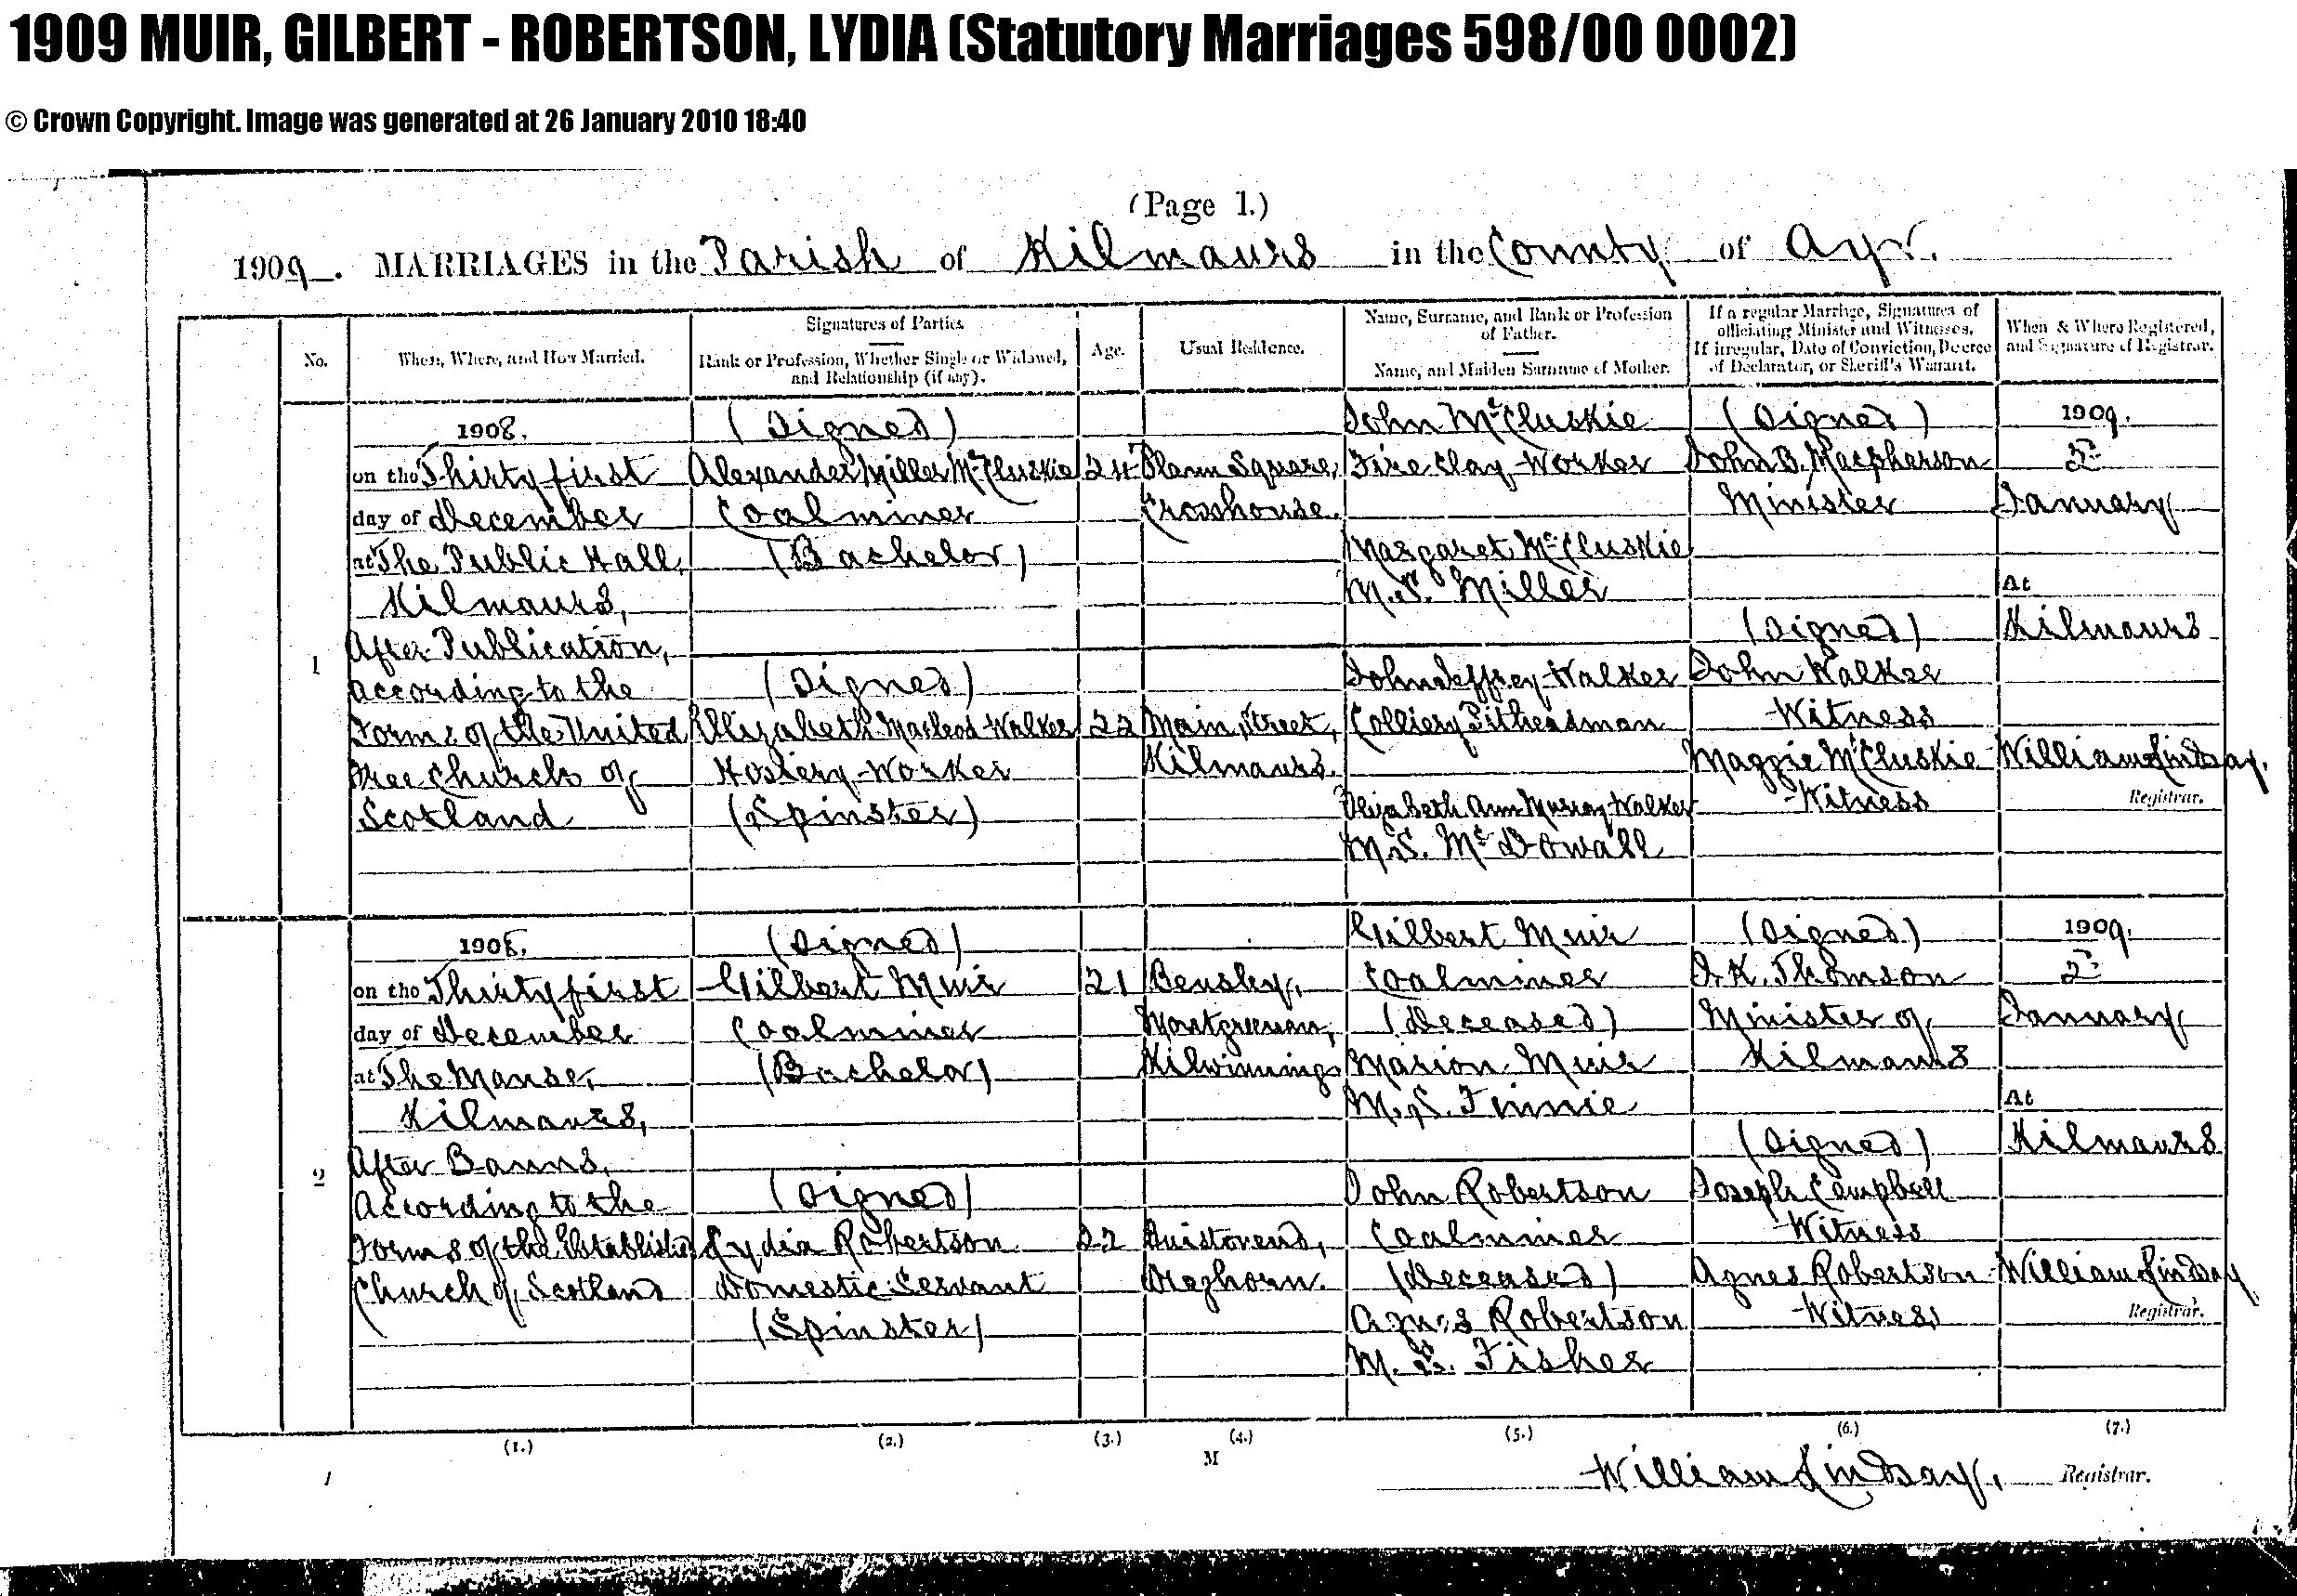 1909 MUIR, GILBERT - ROBERTSON, LYDIA (Statutory Marriages 598/00 0002)
© Crown Copyright. Image was generated at 26 January 2010 18:40
(Page 1.)
1909. MARRIAGES in the Parish of Kilmaurs in the County of Ayr.
No.
When, Where, and How Married.
Signatures of Parties.
Rank or Profession, Whether Single or Widowed,
and Relationship (if any).
Age.
Usual Residence.
Name, Surname, and Rank or Profession
of Father.
Name, and Maiden Surname of Mother.
If a regular Marriage, Signatures of
officiating Minister and Witnesses.
If irregular, Date of Conviction, Decree
of Declarator, or Sheriff's Warrant.
When & Where Registered,
and Signature of Registrar.
1
1908.
on the Thirty first
day of December
at The Public Hall,
Kilmaurs,
After Publication,
According to the
Forms of the United
Free Church of
Scotland
(Signed)
Alexander Miller McCluskie
Coalminer
(Bachelor)
(Signed)
Elizabeth Macleod Walker
Hosiery-Worker
(Spinster)
24
22
Plann Square,
Crosshouse.
Main Street,
Kilmaurs.
John McCluskie
Fire Clay-Worker
Margaret McCluskie
M.S. Miller
John Jeffrey Walker
Colliery Pitheadman
Elizabeth Ann Murray Walker
M.S. McDowall
(Signed)
John B. Macpherson
Minister
(Signed)
John Walker
Witness
Maggie McCluskie
Witness
1909.
January
At
Kilmaurs
William Lindsay.
Registrar.
2
1908.
on the Thirty first
day of December
at The Manse,
Kilmaurs,
After Banns,
According to the
Forms of the Established
Church of Scotland
(Signed)
Gilbert Muir
Coalminer
(Bachelor)
(Signed)
Lydia Robertson
Domestic Servant
(Spinster)
21
22
Bensley,
Montgreenan,
Kilwinning
Dreghorn.
Gilbert Muir
Coalminer
(Deceased)
Marion Muir
M.S. Finnie
John Robertson
Coalminer
(Deceased)
Agnes Robertson
M.S. Fisher
(Signed)
Thomson
Minister of
Kilmaurs
(Signed)
Joseph Campbell
Witness
Agnes Robertson
Witness
1909.
January
At
Kilmaurs
William Lindsay
Registrar.
(1.) (2.) (3.) (4.) (5.) (6.) (7.)
M
William Lindsay, Registrar.